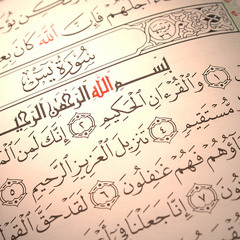 أَجَلُهُمْ فَإِنَّ ٱللَّهَ كَانَ
سُورَةُ يسٓ
بِسْمِ ٱللَّهِ ٱلرَّحْمَٰنِ ٱلرَّحِيمِ
١ وَٱلْقُرْءَانِ ٱلْحَكِيمِ ٢ إِنَّكَ لَمِنَ
مُّسْتَقِيمٍ ٤ تَنزِيلَ ٱلْعَزِيزِ ٱلرَّحِيمِ ٥
ؤُهُمْ فَهُمْ غَٰفِلُونَ ٦ لَقَدْ حَقَّ ٱلْقَ
ونَ ٧ إِنَّا جَعَلْنَا فِىٓ أَ